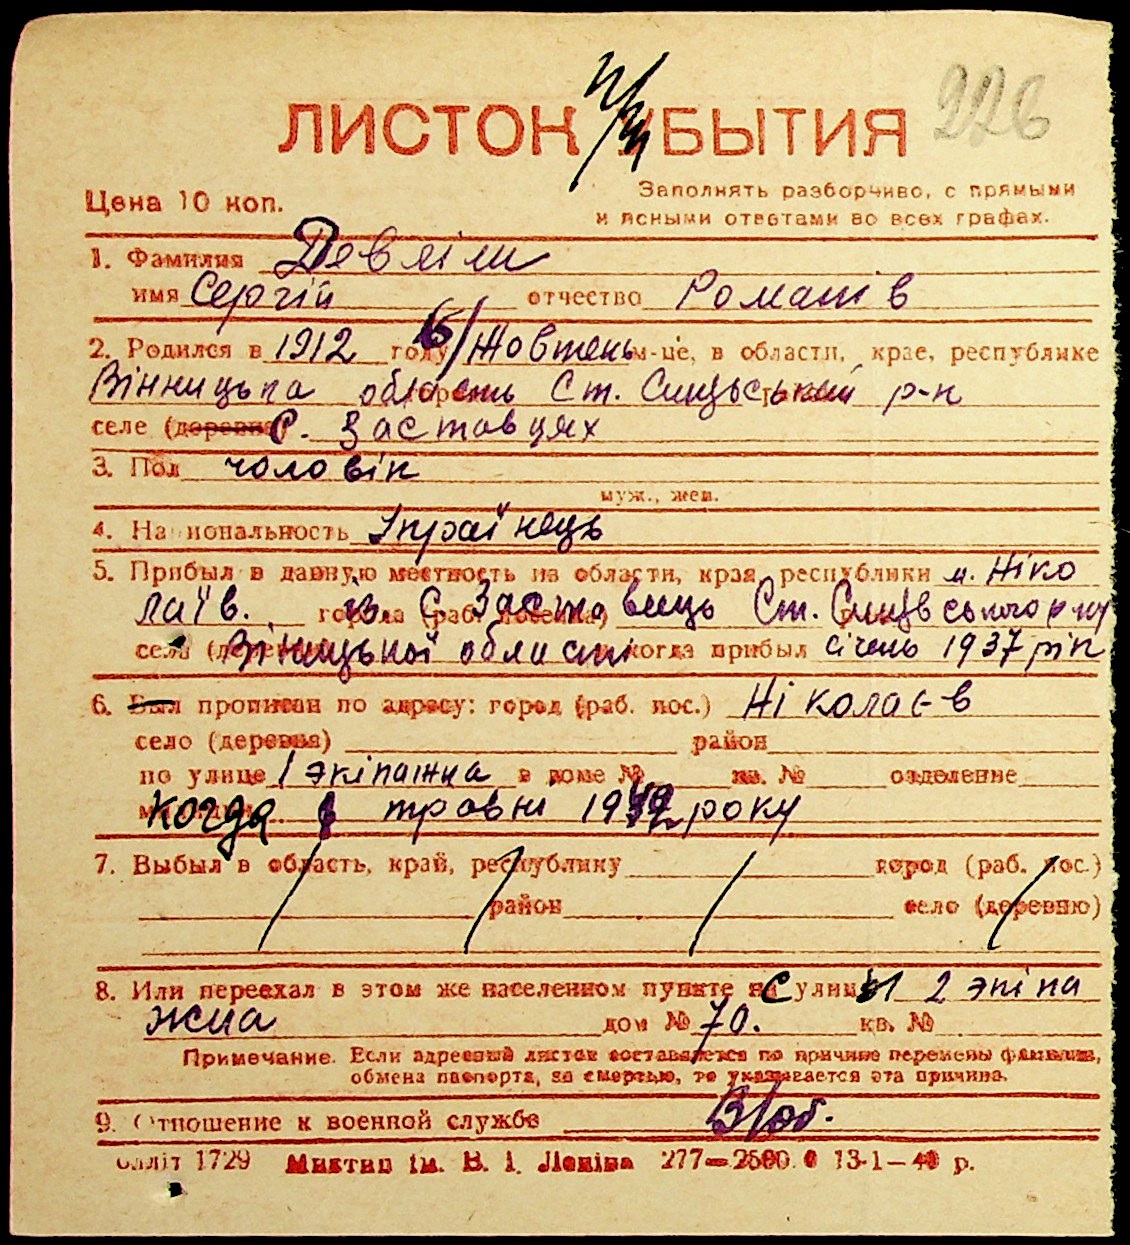 226
ЛИСТОК УБЫТИЯ
Цена 10 коп.
Заполнять разборчиво, с прямыми
и ясными ответами во всех графах.
1. Фамилия Девлiш
имя Сергій отчество Романів
2. Родился в 1912 году 6/Жовтень м-це, в области, крае, республике
Вінницька область Ст. Синявський р-н
селе (деревне) С. Заставцях
3. Пол чоловік
муж., жен.
4. Национальность Українець
5. Прибыл в данную местность из области, края, республики м. Ніко
лаїв. города (раб. поселка) з С Заставець Ст. Синявського р-ну
села (дер Вінницької області когда прибыл січень 1937 рік
6. Был прописан по адресу: город (раб. пос.) Ніколаєв
село (деревня) район
по улице 1 экіпажна в доме № кв. № отделение
милиции Когда в травні 1942 року
7. Выбыл в область, край, республику город (раб. пос.)
район село (деревню)
8. Или переехал в этом же населенном пункте на С улицы 2 экіпа
жна дом № 70. кв. №
Примечание. Если адресный листок составляется по причине перемены фамилии,
обмена паспорта, за смертью, то указывается эта причина.
9. Отношение к военной службе В/об.
Облліт 1729 Миктип ім. В. І. Леніна 277—2500. 13-1—40 р.